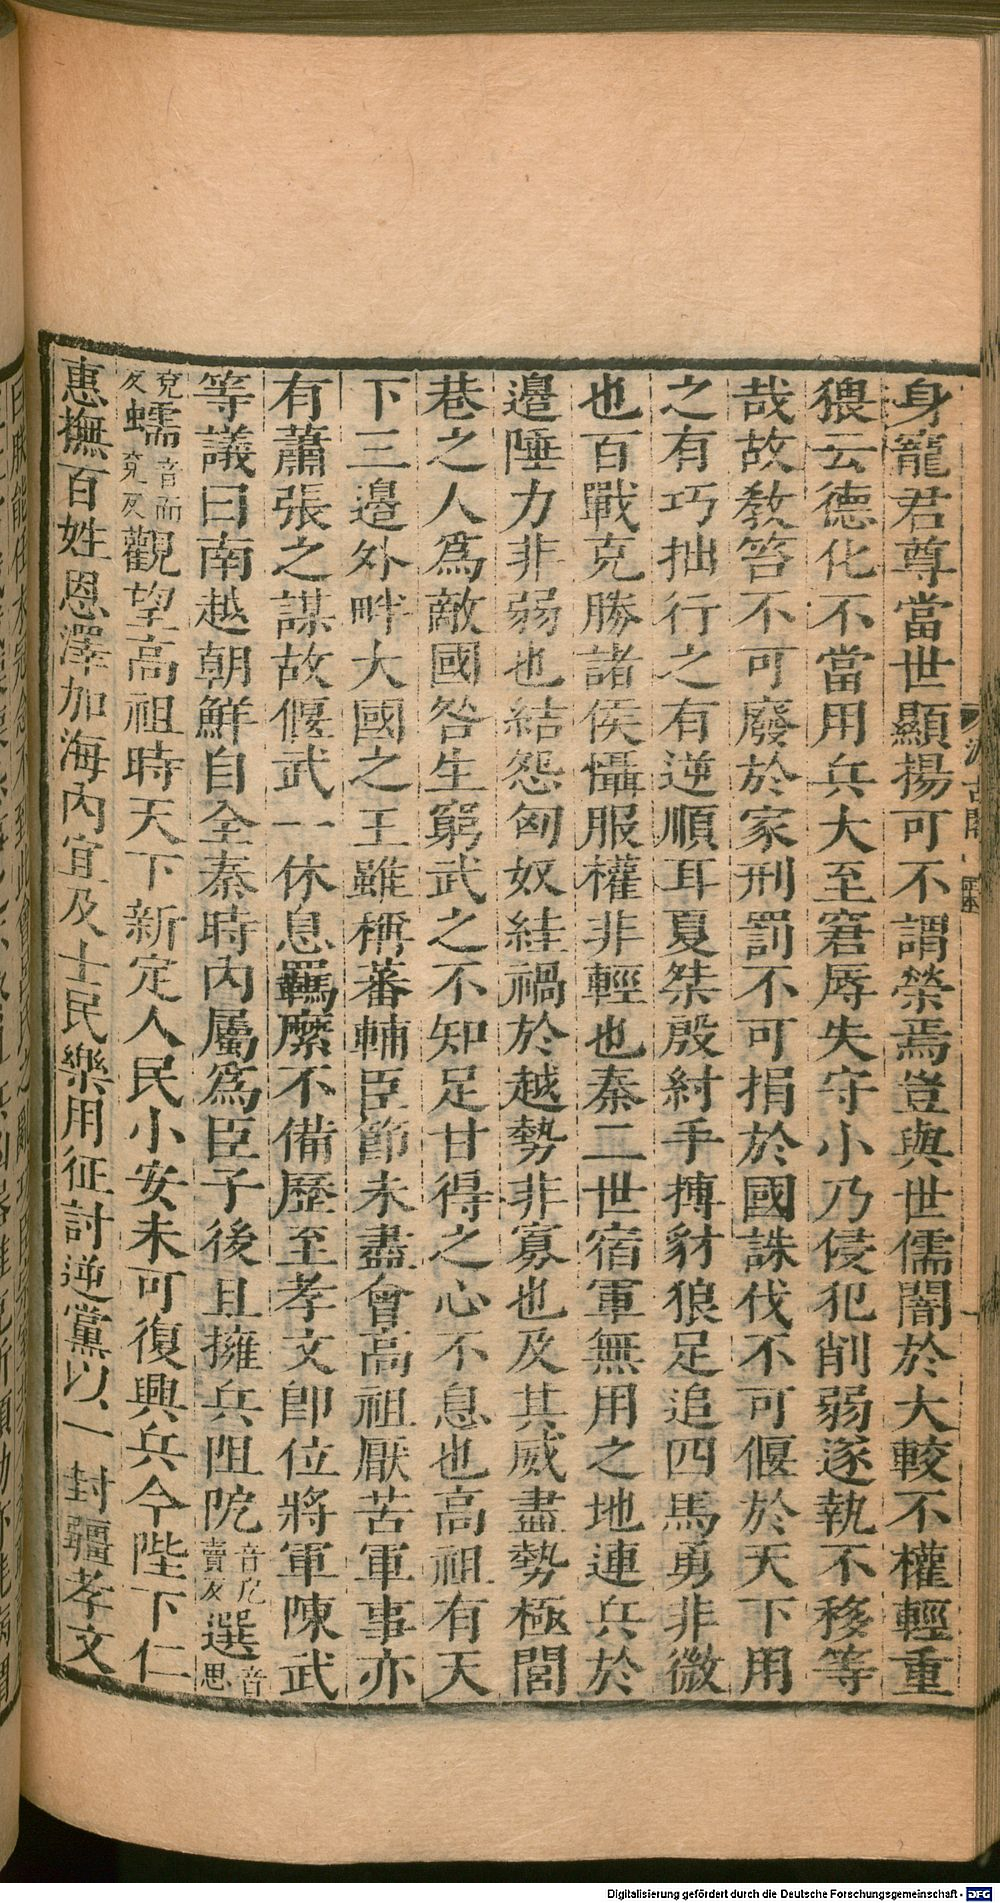 身寵君尊當世顯揚可不謂榮焉豈與世儒闇於大較不權輕重
猥云德化不當用兵大至窘辱失守小乃侵犯削弱遂執不移等
哉故教笞不可廢於家刑罰不可捐於國誅伐不可偃於天下用
之有巧拙行之有逆順耳夏桀殷紂手搏豺狼足追四馬勇非微
也百戰克勝諸侯懾服權非輕也秦二世宿軍無用之地連兵於
邉陲力非弱也結怨匈奴絓禍於越勢非寡也及其威盡勢極閭
巷之人爲敵國咎生窮武之不知足甘得之心不息也高祖有天
下三邉外畔大國之王雖稱蕃輔臣節未盡會高祖厭苦軍事亦
有蕭張之謀故偃武一休息羈縻不備歷至孝文即位將軍陳武
等議曰南越朝鮮自全秦時内屬爲臣子後且擁兵阻阨音厄賣反選音思
兗反蠕音而兗反觀望高祖時天下新定人民小安未可復興兵今陛下仁
惠撫百姓恩澤加海内宜及士民樂用征討逆黨以一封疆孝文
汲古閣
Digitalisierung gefördert durch die Deutsche Forschungsgemeinschaft - DFG